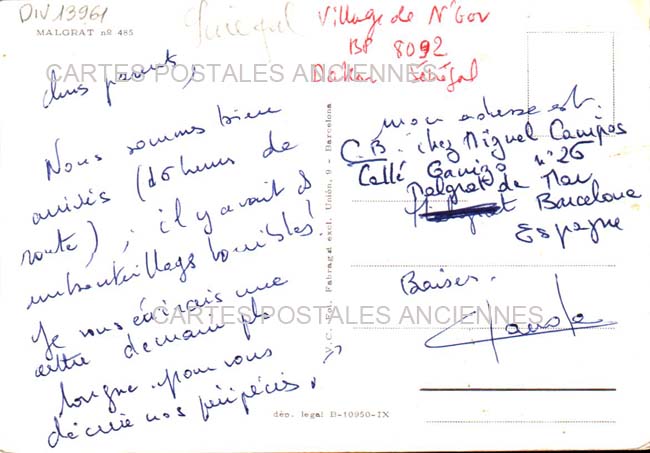 DIV 13961
MALGRAT nº 485
Village de N'Gor
BP 8092
Dakar Sénégal
CARTES POSTALES ANCIENNES
chers parents,
Nous sommes bien
arrivés (16 heures de
route) ; il y avait des
embouteillages horribles!
Je vous écrirais une
lettre demain plus
longue pour vous
décrire nos péripéties.
V. C. - Fot. Fabregat excl. Unión, 9 - Barcelona
mon adresse est:
C.B. chez Miguel Campos
Callé n° 26
Malgrat de Mar
Barcelone
Espagne
Baisers.
CARTES POSTALES ANCIENNES
dep. legal B-10950-IX